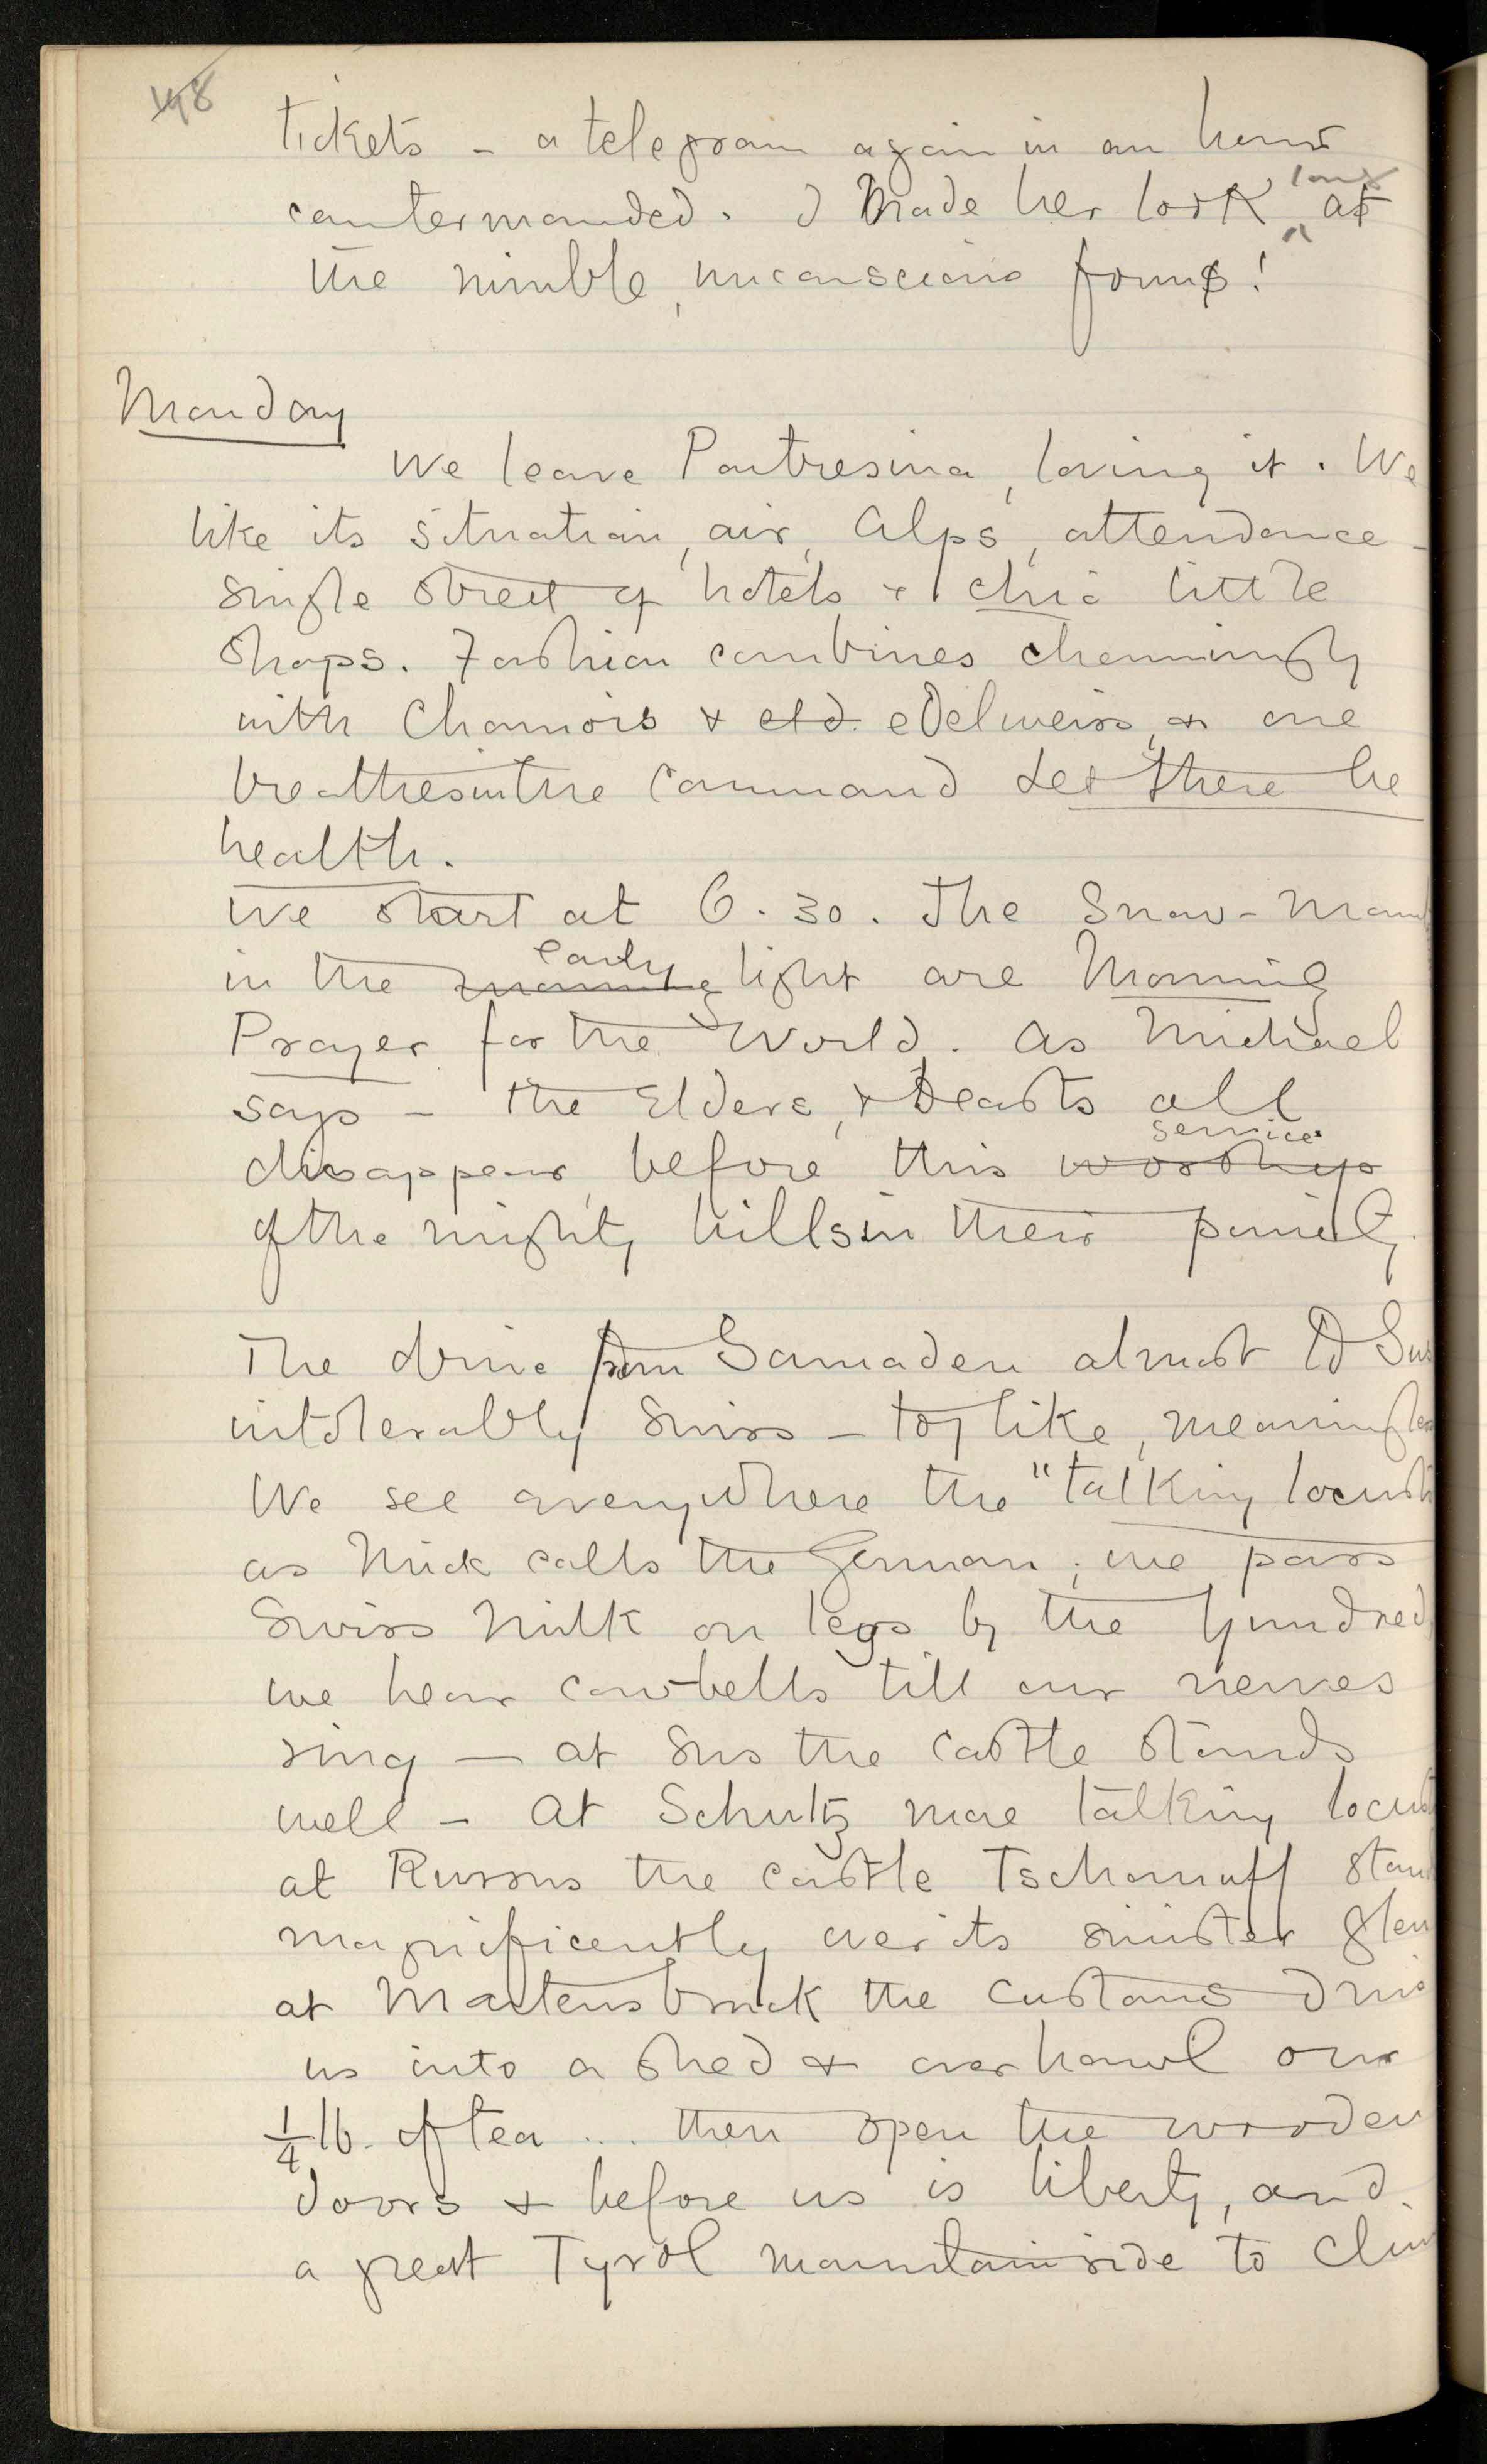 148
tickets – a telegram again in an hour
countermanded. I made her look long at
the nimble, unconscious forms!
Monday
We leave Pontresina, loving it. We
like its situation, air, Alps, attendance –
single street of hotels & chic little
shops. Fashion combines charmingly
with Chamois & eld edelweiss, & one
breathes in the command Let there be
health.
We start at 6.30. The Snow-Mount
in the morning early light are Morning
Prayer for the World. As Michael
says – the Elders, & Beasts all
disappear, before this worship service
of the mighty hills in their purity.
The drive from Samaden almost to Sus
intolerably Swiss – toy like, meaningless
We see everywhere the "talking locusts
as Mick calls the German; we pass
Swiss Milk on legs by the hundred,
we hear cow-bells till our nerves
ring – at Sus the Castle stands
well – at Schultz more talking locust
at Russus the castle Tschanuff stan
magnificently over its sinister glen
at Martensbruck the customs
us into a shed & overhawl our
1/4 lb. of tea ... then open the wooden
doors & before us is liberty, and
a great Tyrol mountain side to clim